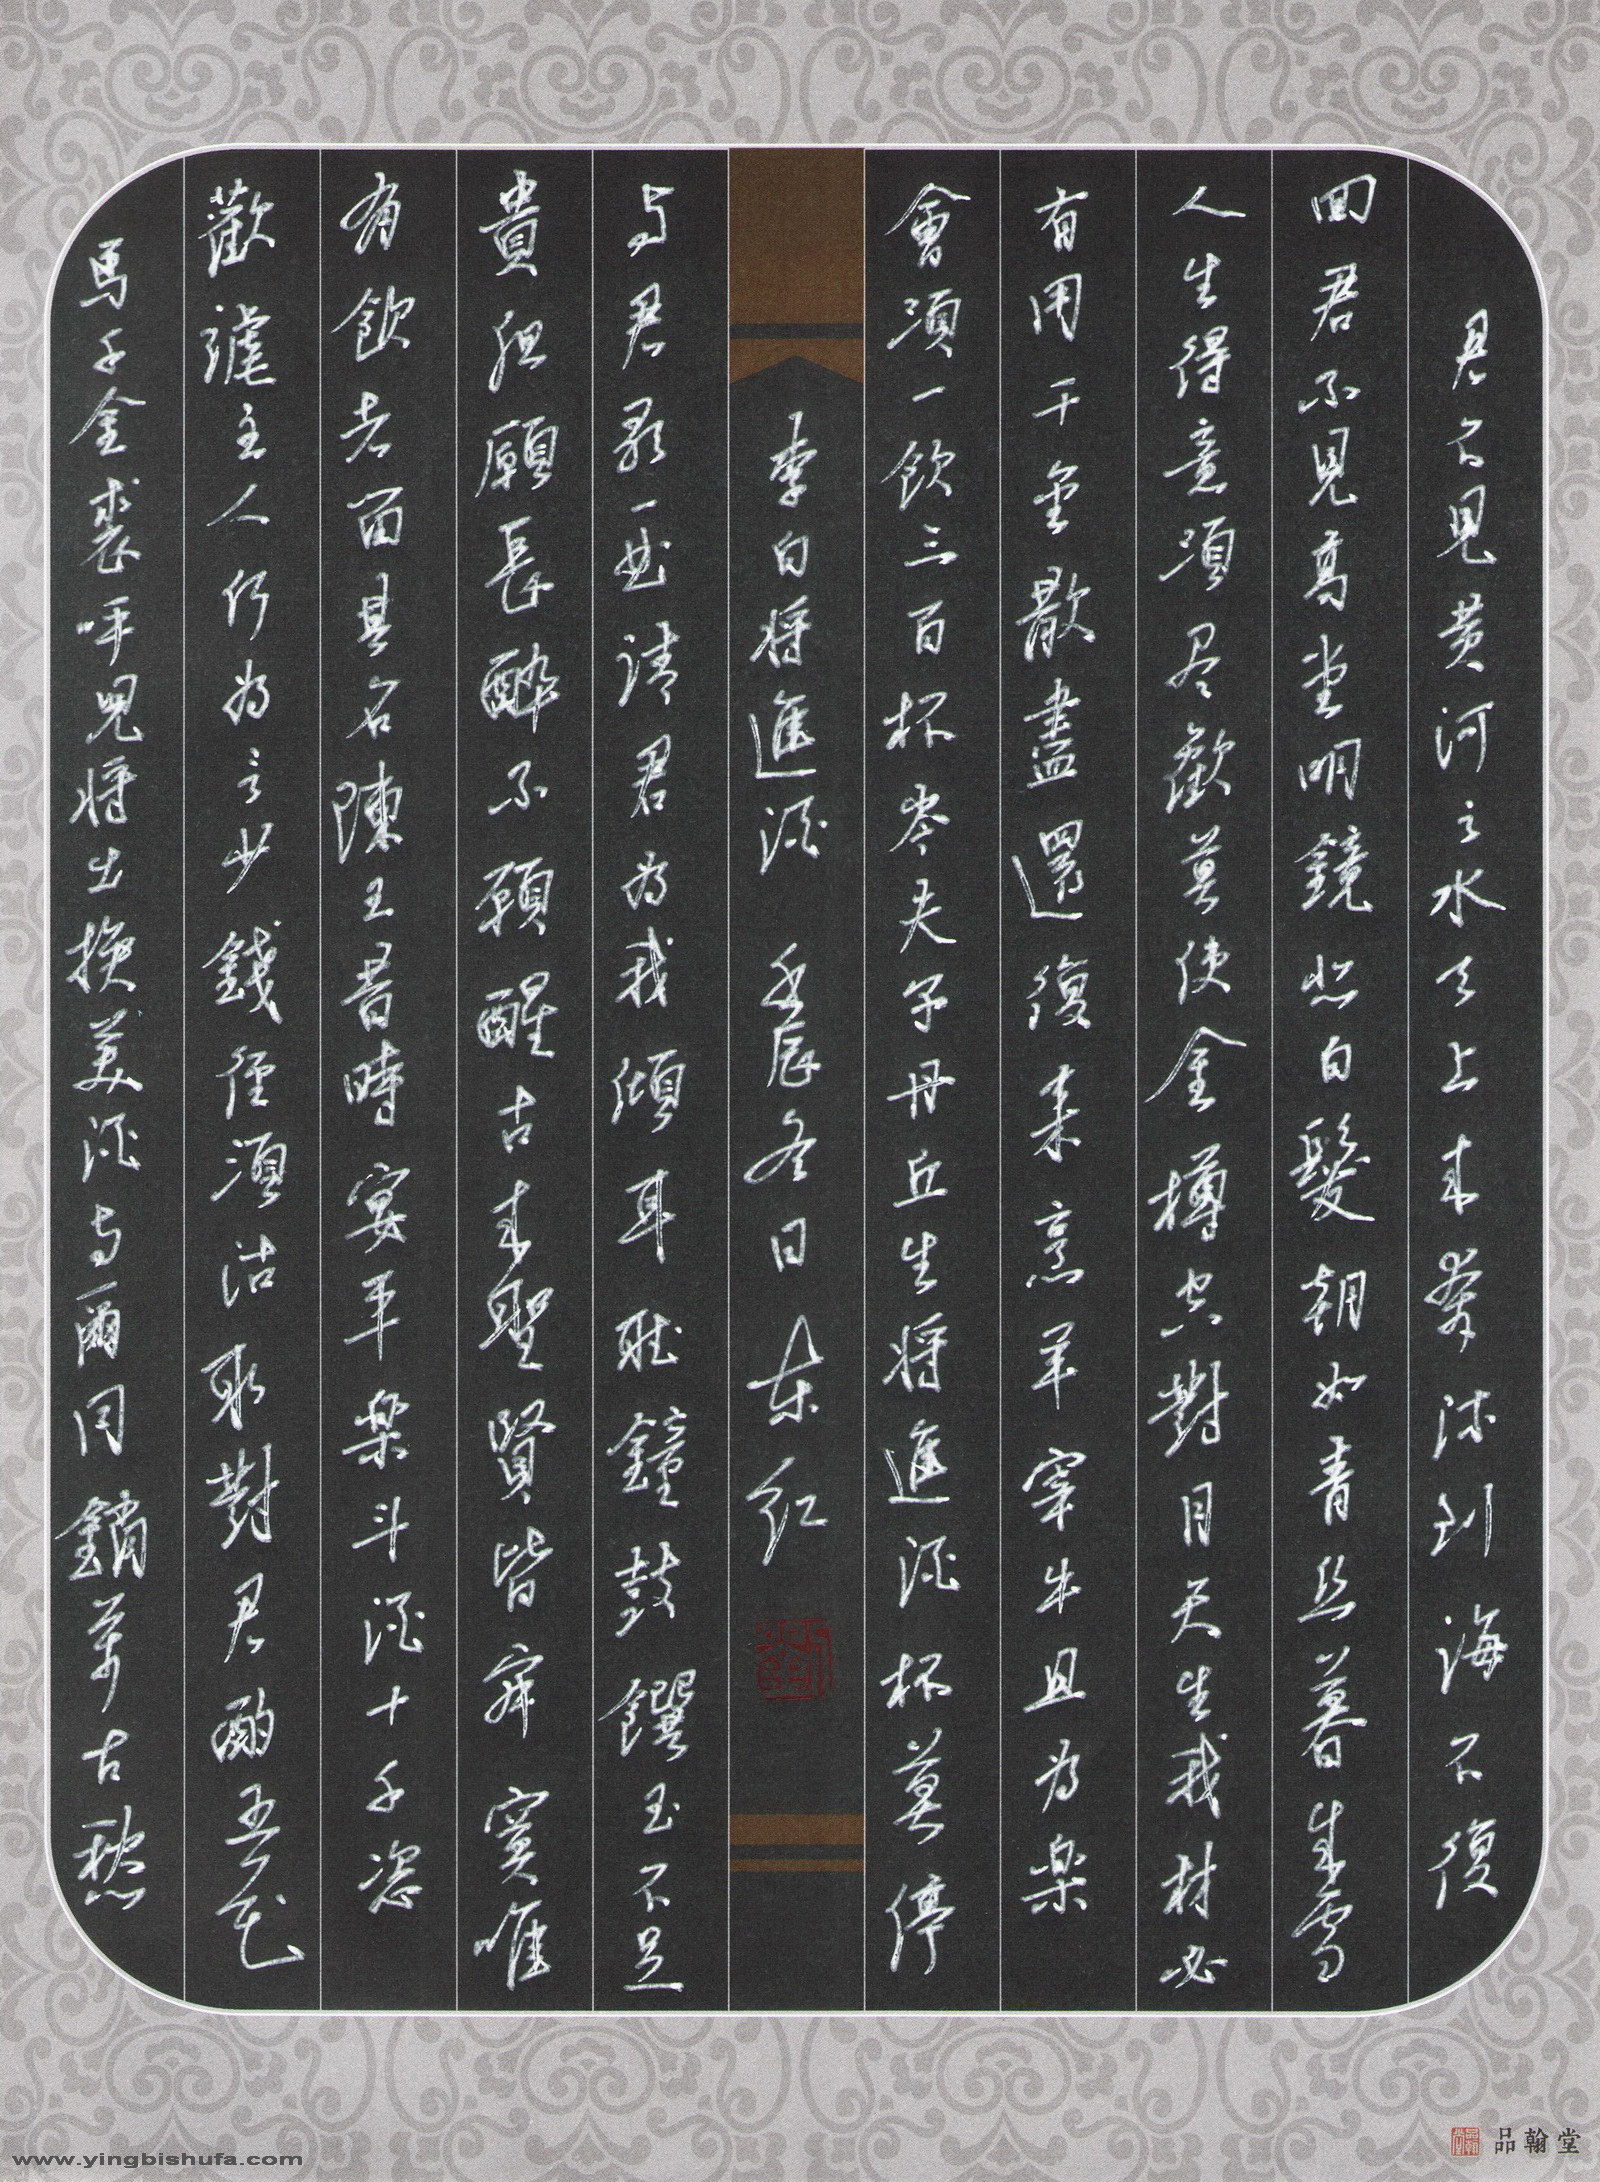 君不見黄河之水天上來奔流到海不復
回君不見高堂明鏡悲白髮朝如青絲暮成雪
人生得意須尽歡莫使金樽空對月天生我材必
有用千金散盡還復来烹羊宰牛且為樂
會須一飲三百杯岑夫子丹丘生将進酒杯莫停
李白将進酒 壬辰冬日 东红
与君歌一曲請君為我傾耳聽鐘鼓饌玉不足
貴但願長醉不願醒古来聖賢皆寂寞唯
有飲者留其名陳王昔時宴平樂斗酒十千恣
歡謔主人何為言少錢徑須沽取對君酌五花
馬千金裘呼兒将出換美酒与爾同銷萬古愁
www.yingbishufa.com
品翰堂